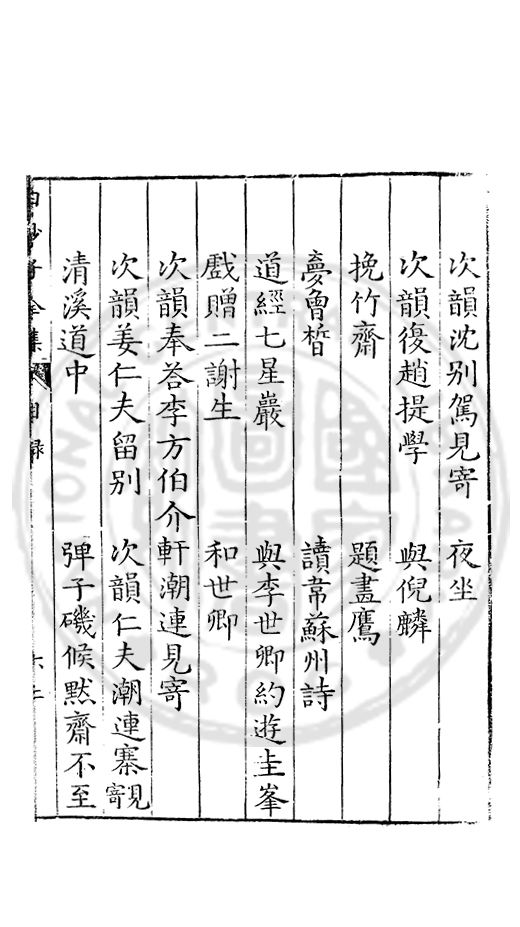 次韻沈别駕見寄　夜坐
次韻復趙提學　與倪麟
挽竹齋　題畫鷹
夢㑹晳　讀韋蘇州詩
道經七星巖　與李世卿約遊圭峯
戲贈二謝生　和世卿
次韻奉荅李方伯介軒潮連見寄
次韻姜仁夫留别　次韻仁夫潮連寨見寄
清溪道中　弾子磯候黙齋不至
白沙子全集　目録